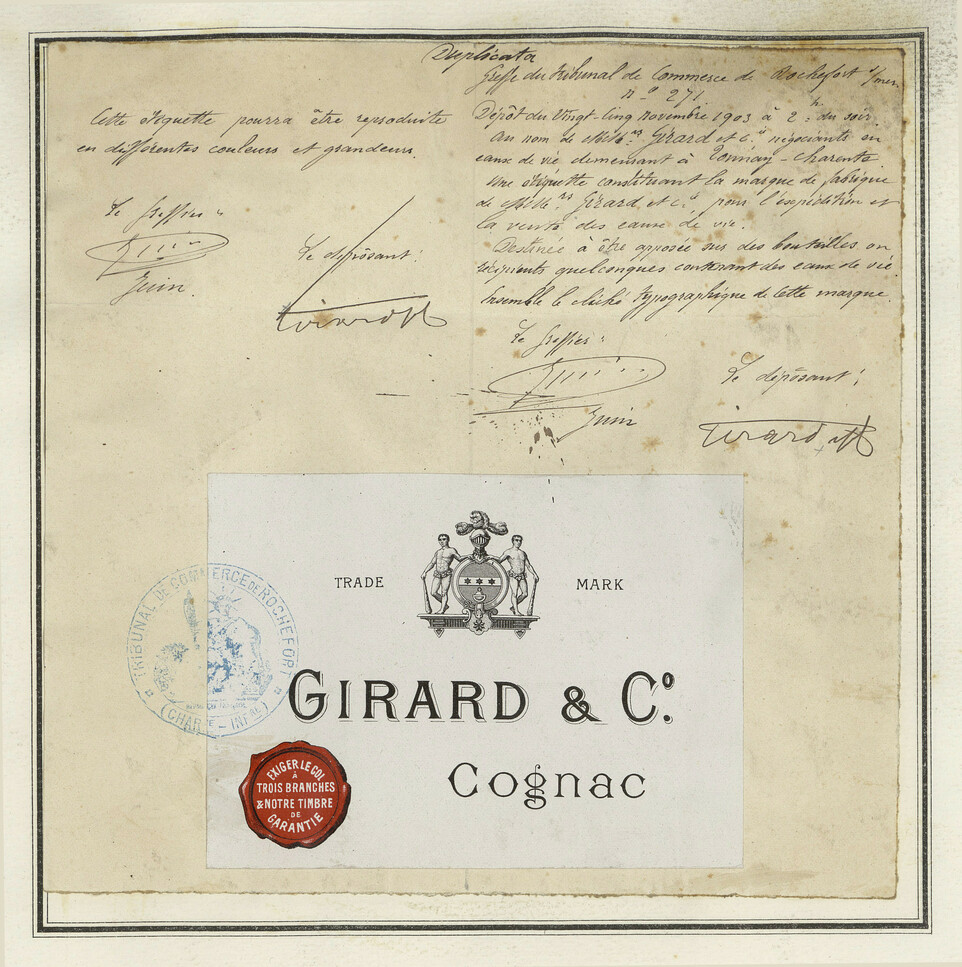 Duplicata
Greffe du Tribunal de Commerce de Rochefort s/mer
nº 271.
Dépôt du Vingt-Cinq novembre 1903 à 2h. du soir.
Au nom de MM. rs Girard et Cie négociants en
eaux de vie demeurant à Tonnay-Charente
Une étiquette constituant la marque de fabrique
de MM. rs Girard et Cie pour l'expédition et
la vente des eaux de vie.
Destinée à être apposée sur des bouteilles ou
récipients quelconques contenant des eaux de vie
Ensemble le cliché typographique de cette marque.
Le Greffier :
Juin
Le déposant :
Girard et Cie
Cette étiquette pourra être reproduite
en différentes couleurs et grandeurs.
Le Greffier :
Juin.
Le déposant.
Girard et Cie
TRADE MARK
GIRARD & Cº.
Cognac
EXIGER LE COL
À
TROIS BRANCHES
& NOTRE TIMBRE
DE
GARANTIE
TRIBUNAL DE COMMERCE DE ROCHEFORT
(CHARTE-INFRE)